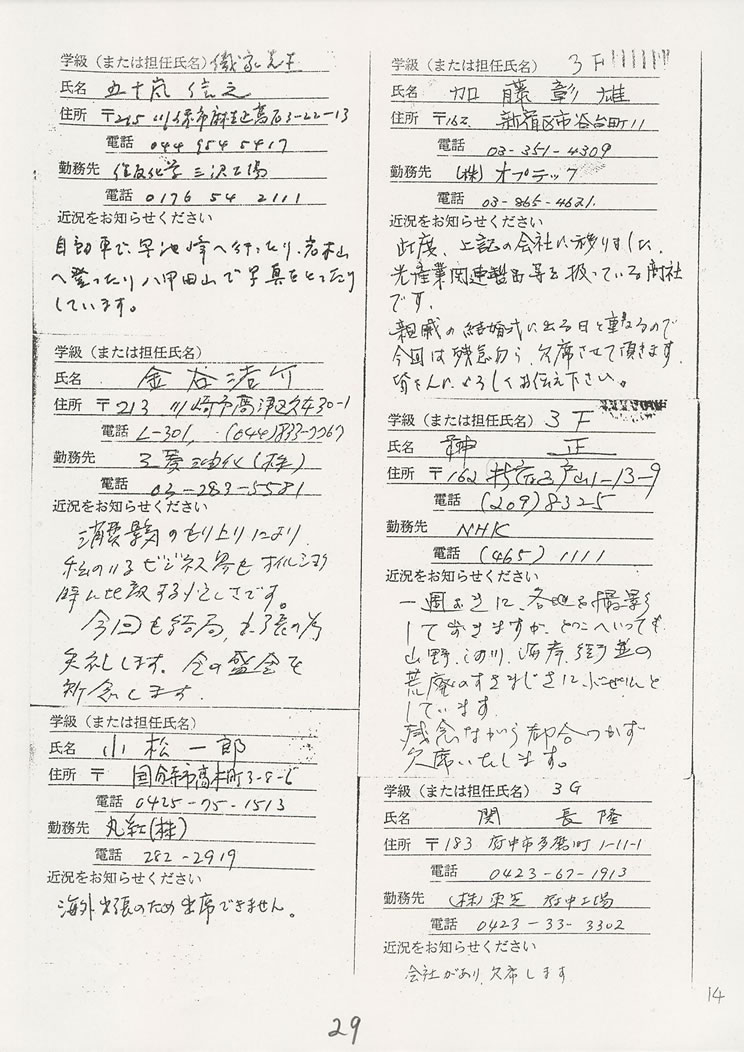 学級（または担任氏名）
氏名 五十嵐 信之
住所 〒215 川崎市麻生区高石3-22-13
電話 044 954 5417
勤務先 住友化学 三沢工場
電話 0176 54 2111
近況をお知らせください
自動車で、早池峰へ行ったり、岩木山
へ登ったり八甲田山で写真をとったり
しています。
学級（または担任氏名）
氏名 金谷浩介
住所 〒213 川崎市高津区久本30-1
電話 L-301, (044)833-2267
勤務先 三菱油化(株)
電話 03-283-5581
近況をお知らせください
消費景気のもり上りにより
私のいるビジネス界もオイルショック
時に比較する忙しさです。
今回も結局、出張の為
失礼します。会の盛会を
祈念します。
学級（または担任氏名）
氏名 小松一郎
住所 〒 国分寺市高木町3-8-6
電話 0425-75-1513
勤務先 丸紅(株)
電話 282-2919
近況をお知らせください
海外出張のため出席できません。
学級（または担任氏名） 3F
氏名 加藤彰雄
住所 〒162 新宿区市谷台町11
電話 03-351-4309
勤務先 (株)オプテック
電話 03-865-4621.
近況をお知らせください
此度、上記の会社に移りました。
光産業関連製品等を扱っている商社
です。
親戚の結婚式に出る日と重なるので
今回は残念乍ら、欠席させて頂きます。
皆さんによろしくお伝え下さい。
学級（または担任氏名） 3F
氏名 榊 正
住所 〒162 新宿区戸山1-13-9
電話 (209)8325
勤務先 NHK
電話 (465)1111
近況をお知らせください
一週おきに、各地を撮影
して歩きますが、どこへいっても
山野、河川、海岸、街並の
荒廃のすさまじさにぶぜんと
しています。
残念ながら都合つかず
欠席いたします。
学級（または担任氏名） 3G
氏名 関 長隆
住所 〒183 府中市多磨町 1-11-1
電話 0423-67-1913
勤務先 (株)東芝 府中工場
電話 0423-33-3302
近況をお知らせください
会社があり、欠席します
14
29